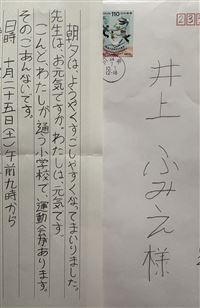 朝夕は、ようやくすごしやすくなってまいりました。
先生は、お元気ですか。わたしは、元気です。
こんど、わたしが通う小学校で、運動会があります。
そのごあんないです。
日時 十月二十五日(土)午前九時から
110
井上 ふみえ様